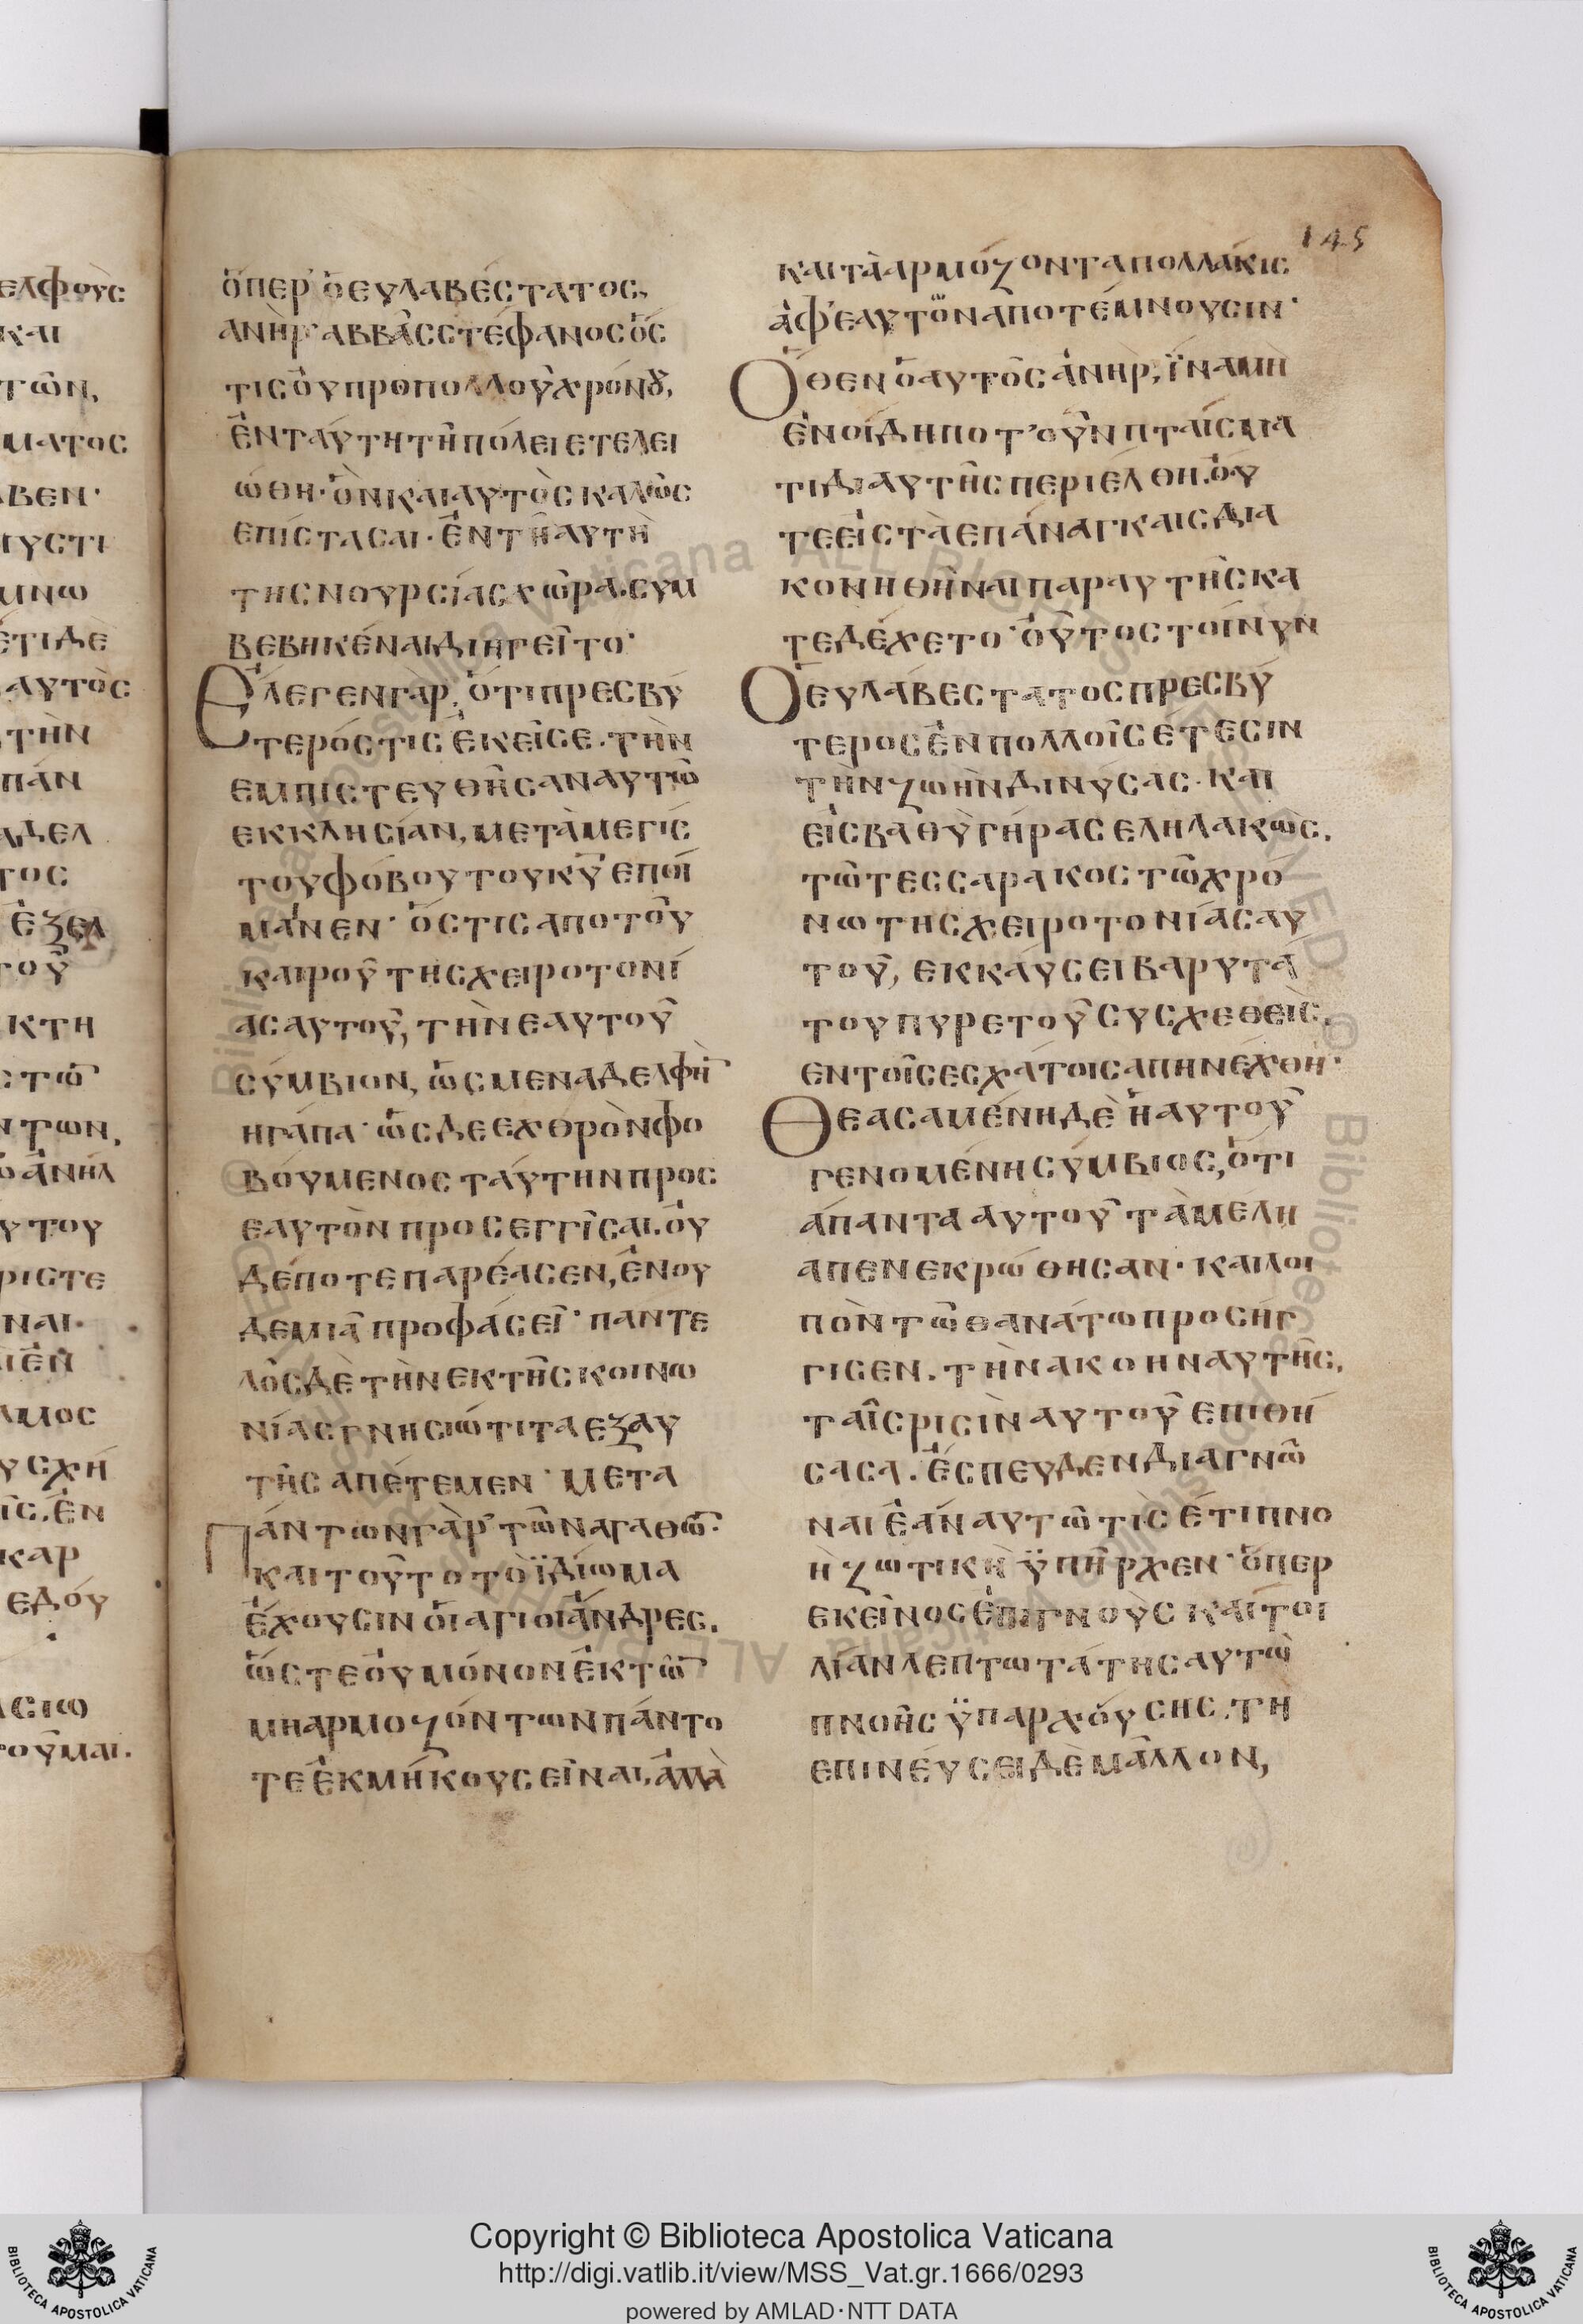 145
ελφοὺς
και
τῶν,
ματος
βεν·
μνω
ἔτι δὲ
αυτὸς
τὴν
πάν
αδελ
τος
ἐξελ
τοῦ
κτη
στῶ
ντων,
υτου
ριστε
ναι.
αμος
υσχή
ὶς. ἐν
καρ
εδόυ
ασιω
τοῦμαι.
ὅπερ ὁ ευλαβέστατος,
ανὴρ αββᾶς στέφανος ὅς
τις ὀυ πρὸ πολλοῦ χρόνȣ,
ἐν τάυτη τῆ πόλει ετελει
ώθη· ὃν και αυτὸς καλῶς
επίστασαι· ἐν τῆ αυτὴ
της νουρσίας χώρα. συμ
βεβηκέναι διηγεῖτο·
Ἔλεγεν γὰρ, ὅτι πρεσβύ
τερός τις ἐκεῖσε. τὴν
εμπιστευθῆσαν αυτῶ
εκκλησίαν, μετὰ μεγίς
του φόβου του κυ εποί
μάνεν· ὅστις απο τοῦ
καιροῦ της χειροτονί
ας αυτοῦ, τὴν εαυτοῦ
σύμβιον, ὡς μεν αδελφὴ
ηγάπα· ὡς δε εχθρὸν φο
βούμενος τάυτην προς
εαυτὸν προσεγγῖσαι. ὀυ
δέποτε παρέασεν, ἐν ου
δεμιᾶ προφάσεῖ· πάντε
λῶς δὲ τὴν εκ τῆς κοινω
νίας γνησιώτιτα εξ αυ
τῆς απέτεμεν· μετα
Πάντων γὰρ τῶν αγαθῶ·
και τοῦτο τὸ ϊδίωμα
ἔχουσιν ὁι αγιοι ἄνδρες.
ὥστε ὀυ μόνον ἐκ τῶ
μη αρμοζόντων πάντο
τε ἐκ μήκους εῖναι. ἀλλὰ
και τὰ αρμόζοντα πολλάκις
ἀφ' εαυτῶν αποτέμνουσιν·
Ὅθεν ὁ αυτὸς ἀνὴρ, ἵνα μὴ
ἐν οίδηποτ' οῦν πταίσμα
τι δι αυτῆς περιέλθη. ὀυ
τε εἰς τὰ επάναγκαις δια
κονηθῆναι παρ αυτῆς κα
τεδέχετο· ὁῦτος τοίνυν
Ὁ ευλάβεστατος πρεσβύ
τερος ἐν πολλοῖς ετεσιν
τὴν ζωὴν δινύσας· και
εἰς βαθὺ γήρας εληλακὼς.
τῶ τεσσαρακοστῶ χρό
νω της χειροτονίας αυ
τοῦ, εκκάυσει βαρυτά
του πυρετοῦ συσχεθεὶς.
εν τοῖς εσχάτοις απηνέχθη·
Θεασαμένη δὲ ἡ αυτοῦ
γενομένη σύμβιος, ὅτι
άπαντα αυτοῦ τὰ μελη
απενεκρώθησαν· και λοι
πὸν τῶ θανάτω προσήγ
γισεν. τὴν ακοην αυτῆς,
ταῖς ρισὶν αυτοῦ επιθή
σασα. ἔσπευδεν διαγνῶ
ναι ἐάν αυτῶ τὶς έτι πνο
ὴ ζωτικὴ ϋπῆρχεν· ὅπερ
εκεῖνος ἐπιγνοὺς καίτοι
λίαν λεπτωτάτης αυτῶ
πνοῆς ϋπαρχόυσης. τη
επινέυσει δὲ μᾶλλον,
Copyright © Biblioteca Apostolica Vaticana
http://digi.vatlib.it/view/MSS_Vat.gr.1666/0293
powered by AMLAD·NTT DATA
BIBLIOTECA APOSTOLICA VATICANA
BIBLIOTECA APOSTOLICA VATICANA